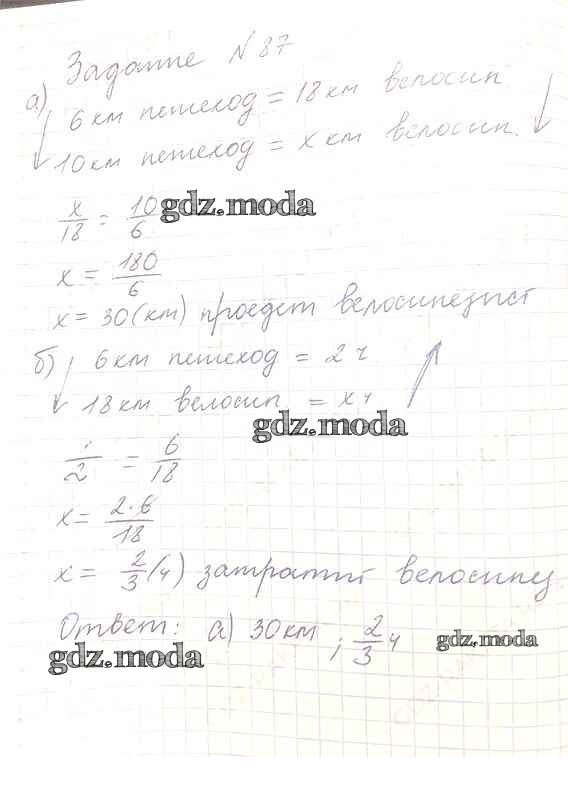 Задание №87
а) 6 км пешеход = 18 км велосип
10 км пешеход = x км велосип.
x/18 = 10/6
gdz.moda
x = 180/6
x = 30 (км) проедет велосипедист
б) 6 км пешеход = 2 ч
18 км велосип = x ч
gdz.moda
/2 = 6/18
x = 2·6/18
x = 2/3 (ч) затратит велосипед
Ответ: а) 30 км ; 2/3 ч
gdz.moda
gdz.moda